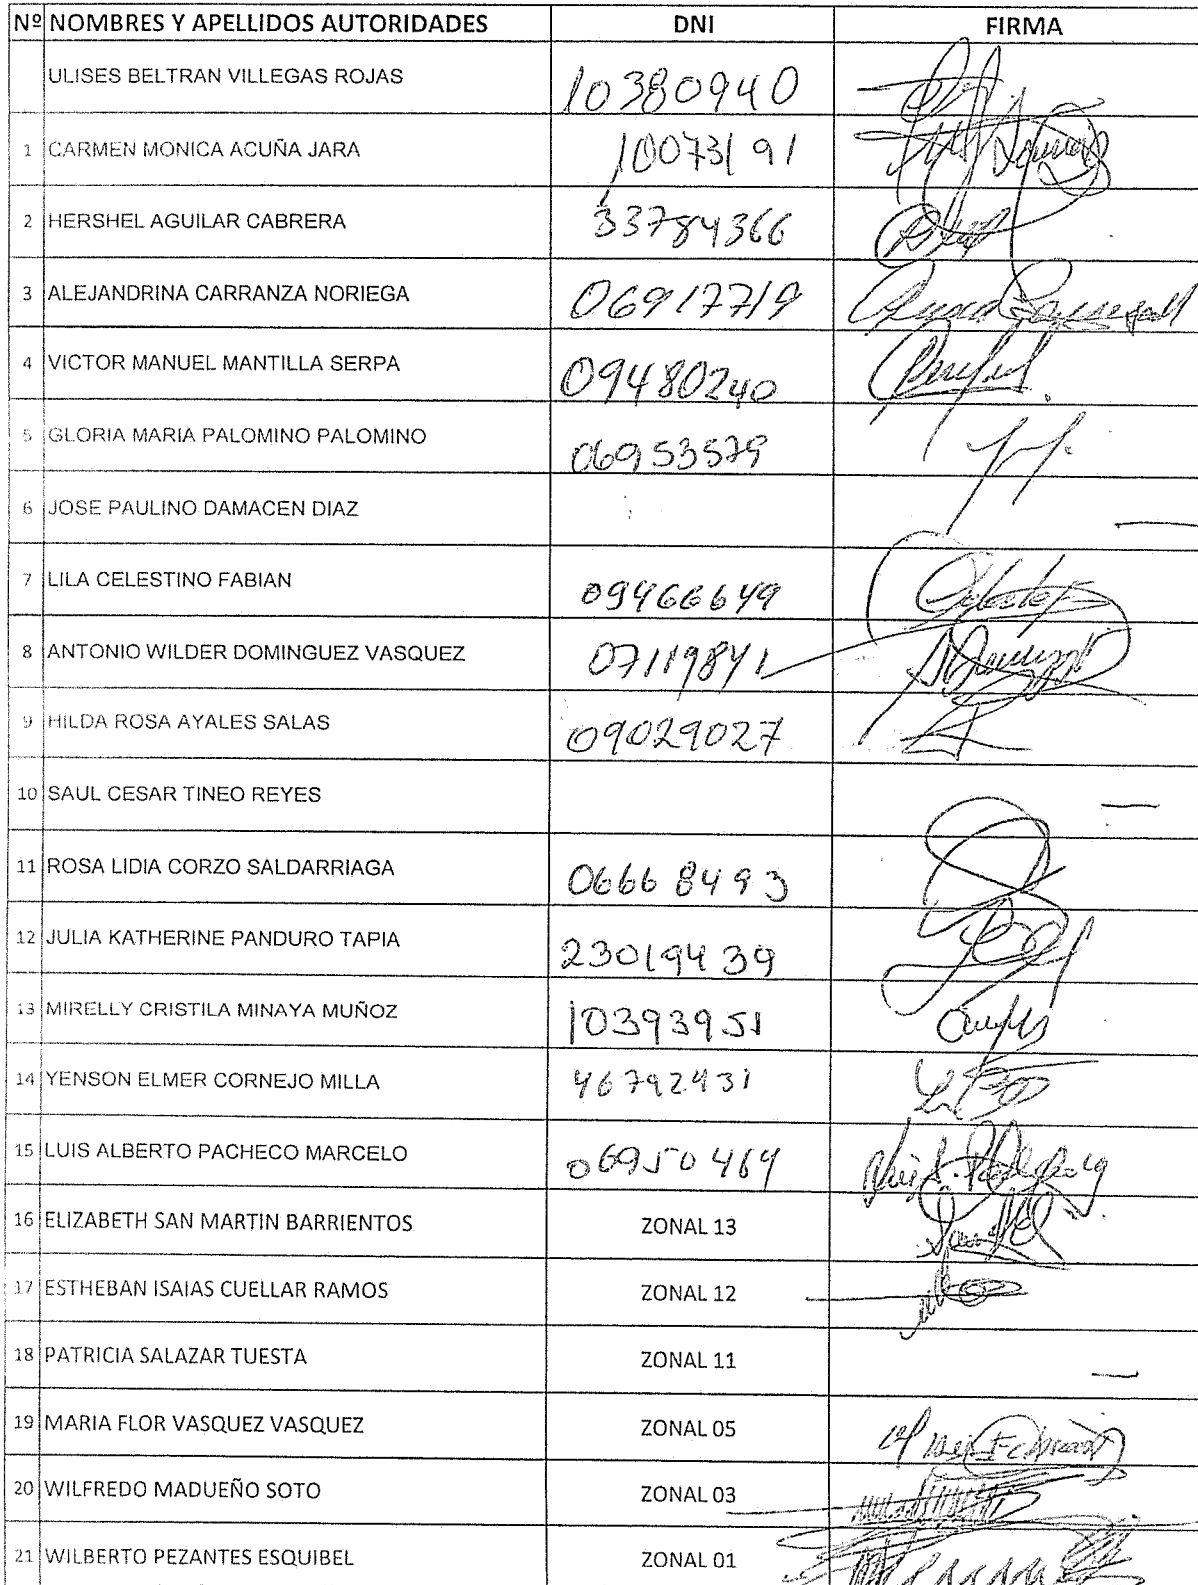 Nº NOMBRES Y APELLIDOS AUTORIDADES DNI FIRMA
ULISES BELTRAN VILLEGAS ROJAS 10380940
1 CARMEN MONICA ACUÑA JARA 10073191
2 HERSHEL AGUILAR CABRERA 33784366
3 ALEJANDRINA CARRANZA NORIEGA 06917719
4 VICTOR MANUEL MANTILLA SERPA 09480240
5 GLORIA MARIA PALOMINO PALOMINO 06953579
6 JOSE PAULINO DAMACEN DIAZ —
7 LILA CELESTINO FABIAN 09466649
8 ANTONIO WILDER DOMINGUEZ VASQUEZ 07119841
9 HILDA ROSA AYALES SALAS 09029027
10 SAUL CESAR TINEO REYES —
11 ROSA LIDIA CORZO SALDARRIAGA 06668493
12 JULIA KATHERINE PANDURO TAPIA 23019439
13 MIRELLY CRISTILA MINAYA MUÑOZ 10393951
14 YENSON ELMER CORNEJO MILLA 46792431
15 LUIS ALBERTO PACHECO MARCELO 06950464
16 ELIZABETH SAN MARTIN BARRIENTOS ZONAL 13
17 ESTHEBAN ISAIAS CUELLAR RAMOS ZONAL 12
18 PATRICIA SALAZAR TUESTA ZONAL 11 —
19 MARIA FLOR VASQUEZ VASQUEZ ZONAL 05
20 WILFREDO MADUEÑO SOTO ZONAL 03
21 WILBERTO PEZANTES ESQUIBEL ZONAL 01